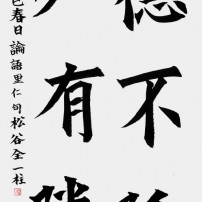 德不
有隣
巳春日 論語里仁句 松谷 全一柱